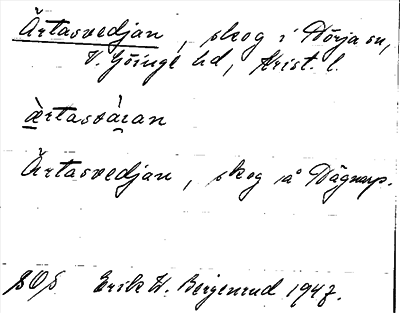 Ärtasvedjan, skog i Nörja sn,
V. Göinge hd, Krist. l.
ærtasváian
Ärtasvedjan, skog å Vägnarp.
SOS Erik W. Bergenrud 1947.